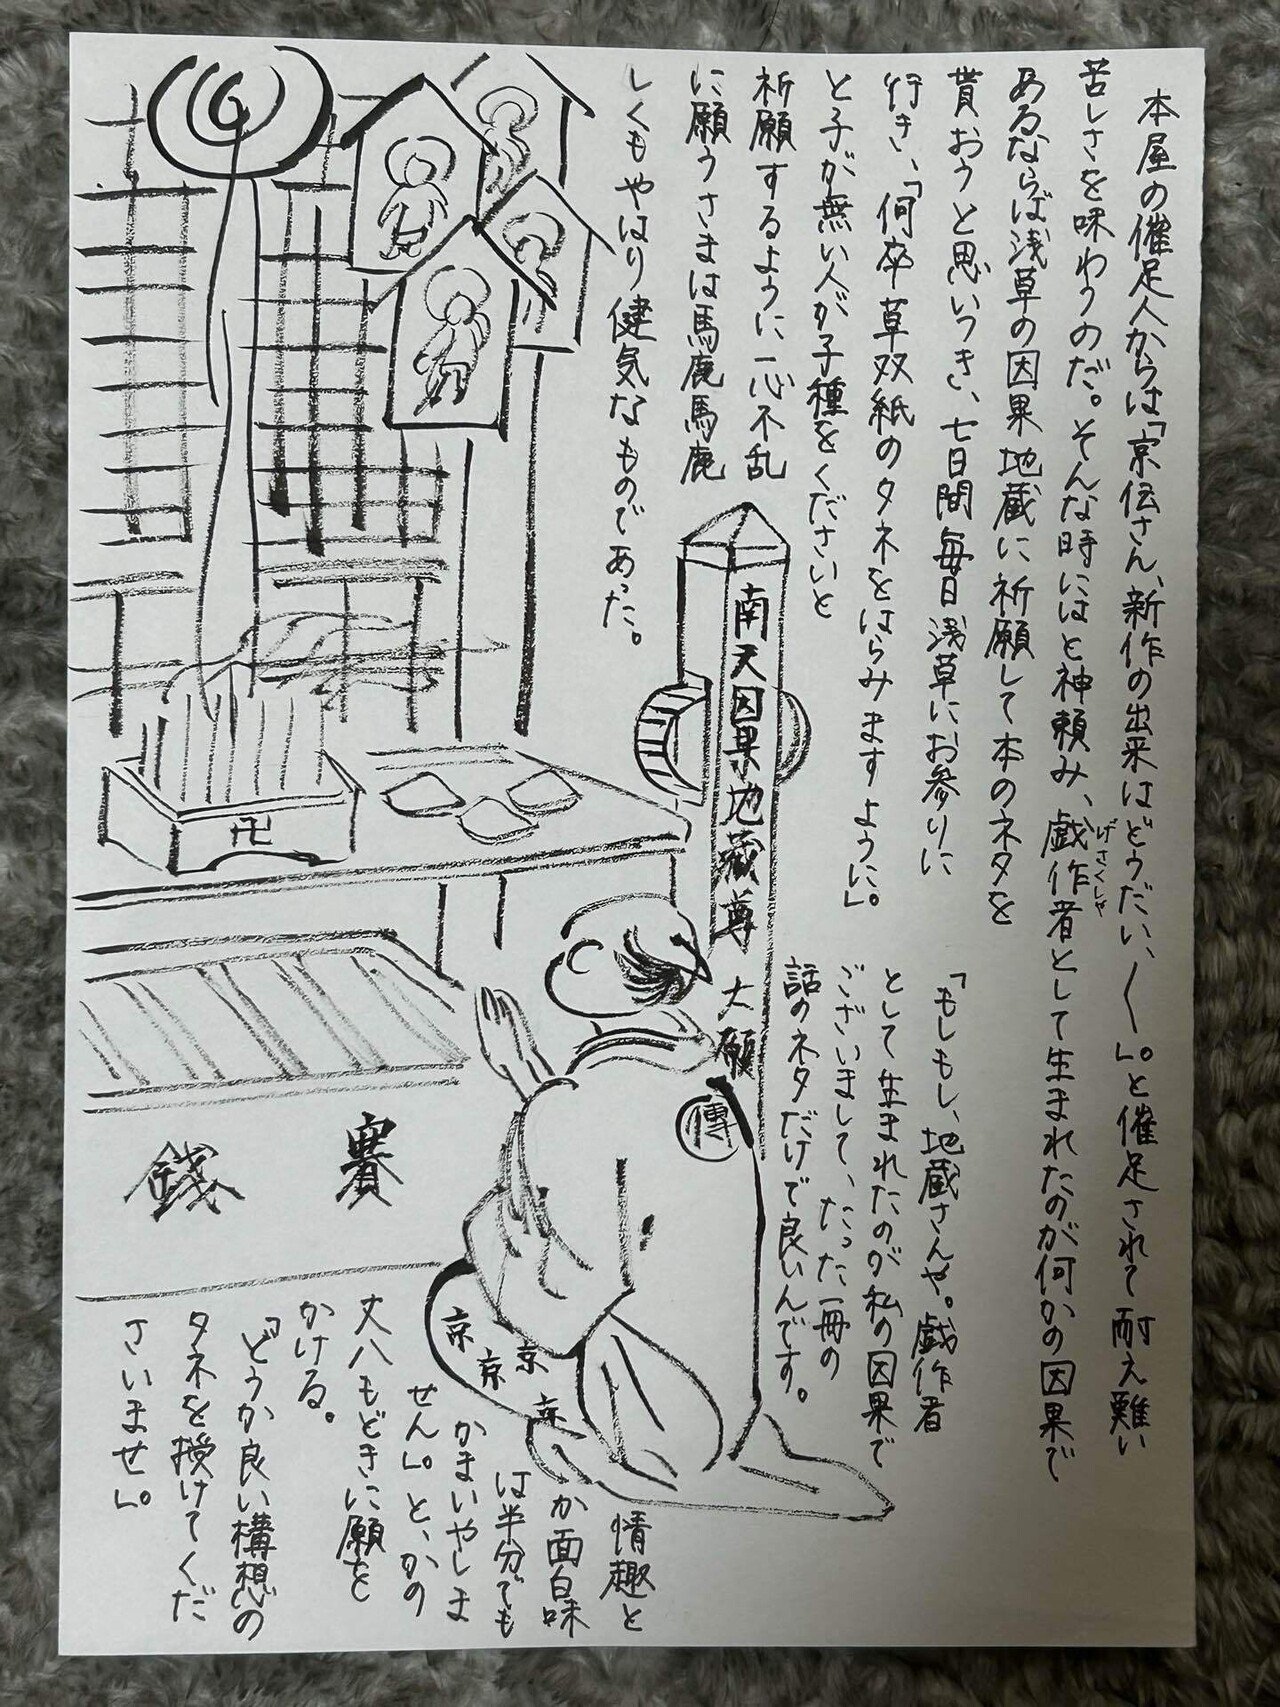 本屋の催足人からは「京伝さん、新作の出来はどうだい、〱」。と催足されて耐え難い
苦しさを味わうのだ。そんな時にはと神頼み、戯作者として生まれたのが何かの因果で
げさくしゃ
あるならば浅草の因果地蔵に祈願して本のネタを
貰おうと思いつき、七日間毎日浅草にお参りに
行き、「何卒草双紙のタネをはらみますように」。
と子が無い人が子種をくださいと
祈願するように一心不乱
に願うさまは馬鹿馬鹿
しくもやはり健気なものであった。
南天因果地蔵尊 大願
「もしもし、地蔵さんや。戯作者
として生まれたのが私の因果で
ございまして、たった一冊の
話のネタだけで良いんです。
情趣と
か面白味
は半分でも
かまいやしま
せん」。と、かの
丈八もどきに願を
かける。
「どうか良い構想の
タネを授けてくだ
さいませ」。
卍
賽
銭
傳
京
京
京
京